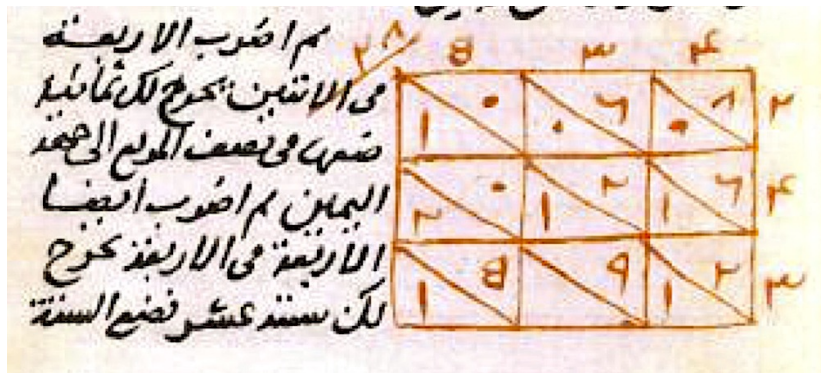 ثم اضرب الاربعة
فى الاثنين يخرج لك ثمانية
ضعها فى نصف المربع الى جهة
اليمين ثم اضرب ايضا
الاربعة فى الاربعة يخرج
لك ستة عشر فضع الستة
٥ ٣ ٤
١ ٠ ٠ ٦ ٠ ٨ ٢
٢ ٠ ١ ٢ ١ ٦ ٤
١ ٥ ٩ ١ ٢ ٣